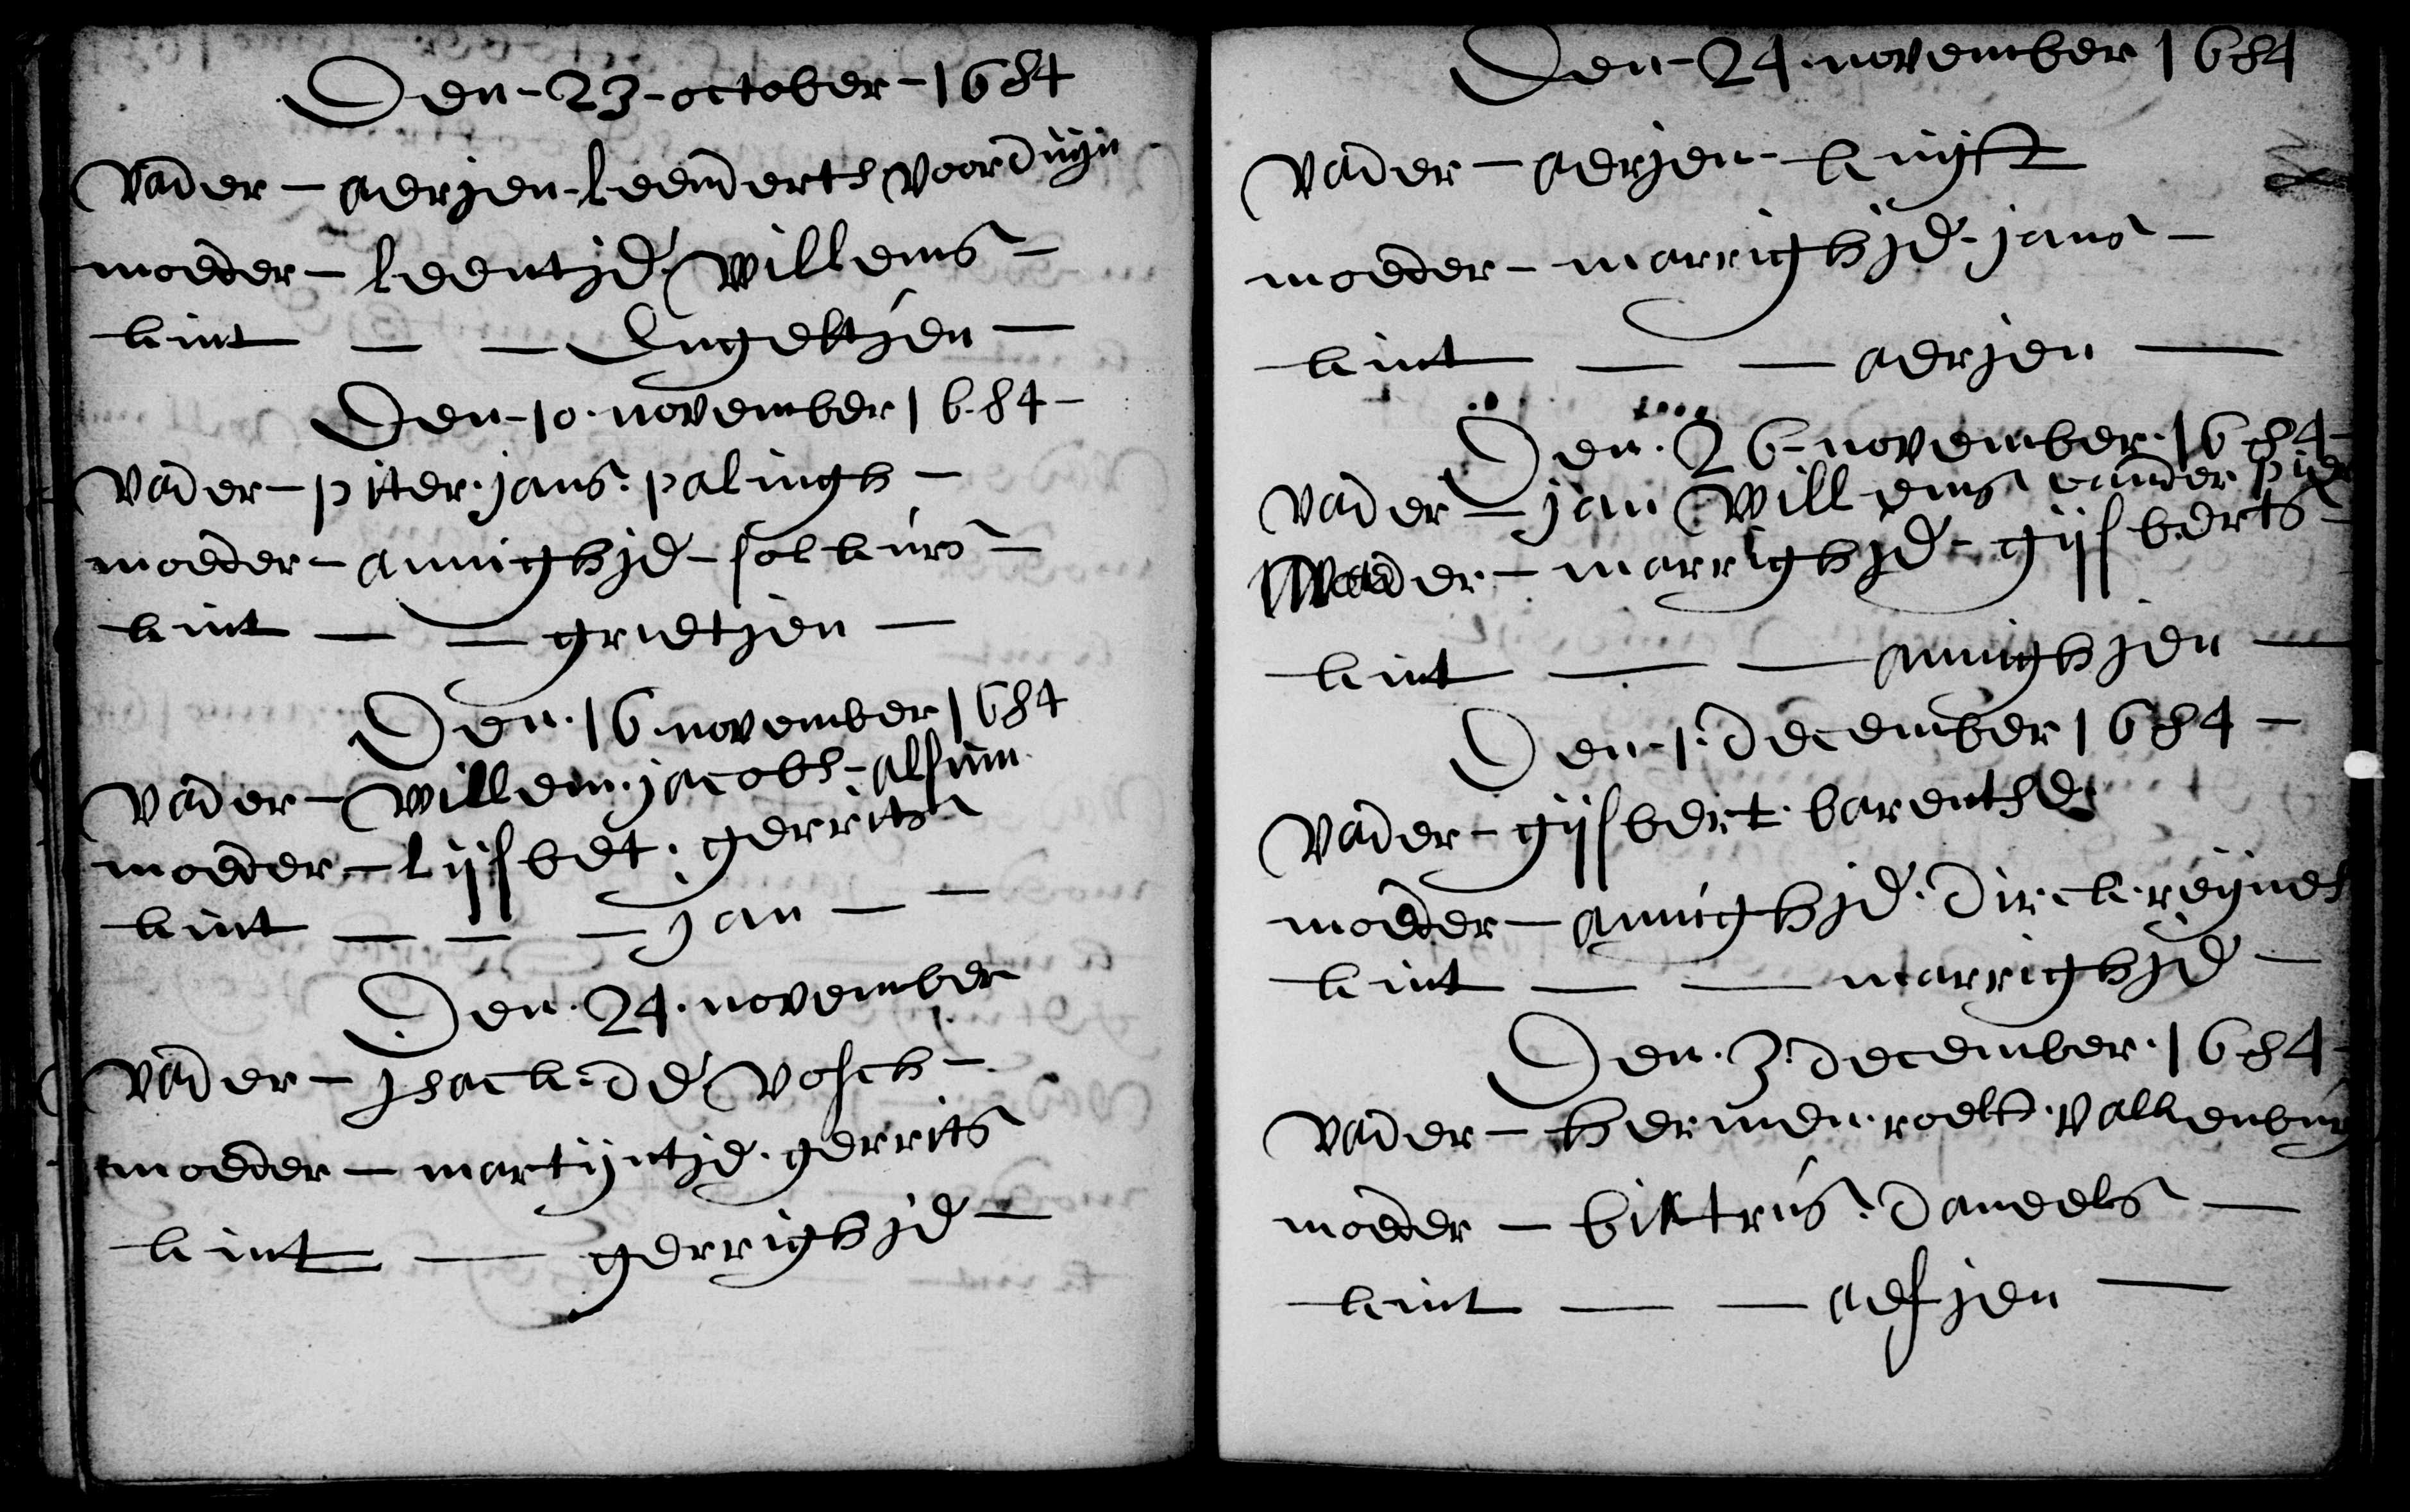 Den - 23 - october - 1684
Vader - aerjen - leenderts voorduijn
moeder - leentje willems -
kint - - Engeltjen -
Den - 10 . november 1684 -
Vader - piter . jans . palingh -
moeder - annighje - folkurs -
kint - - grietjen -
Den . 16 . november 1684
Vader - willem . jacobs - alsum
moeder - lijsbet . gerrits
kint - - - jan - -
Den . 24 . november
Vader - jsack . de vosch -
moeder - martijntje . gerrits
kint - gerrighje -
Den - 24 . november 1684
Vader - aerjen - kuijf
moeder - marrighje - jans -
kint - - aerjen -
Den . 26 - november . 1684 -
Vader - jan willems vander pijl
moeder - marrighje - gijsberts -
kint - - annighjen -
Den - 1 . december 1684 -
Vader - gijsbert . barentse
moeder - annighje . dirck . reijnes
kint - - marrighje -
Den . 3 . december . 1684 -
Vader - hermen . roelt . valkenburg
moeder - biktrus . daneels -
kint - - aefjen -